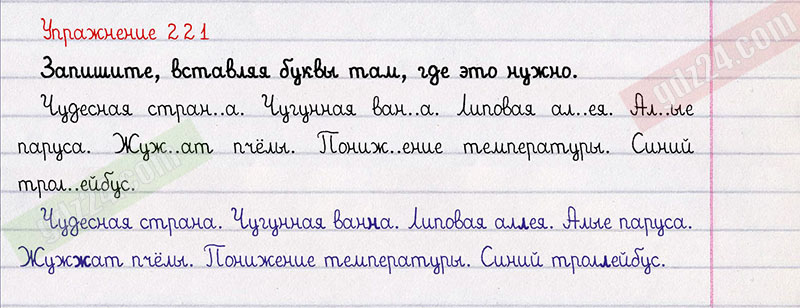 Упражнение 221
Запишите, вставляя буквы там, где это нужно.
Чудесная стран..а. Чугунная ван..а. Липовая ал..ея. Ал..ые
паруса. Жуж..ат пчёлы. Пониж..ение температуры. Синий
трол..ейбус.
Чудесная страна. Чугунная ванна. Липовая аллея. Алые паруса.
Жужжат пчёлы. Понижение температуры. Синий троллейбус.
gdz24.com
gdz24.com